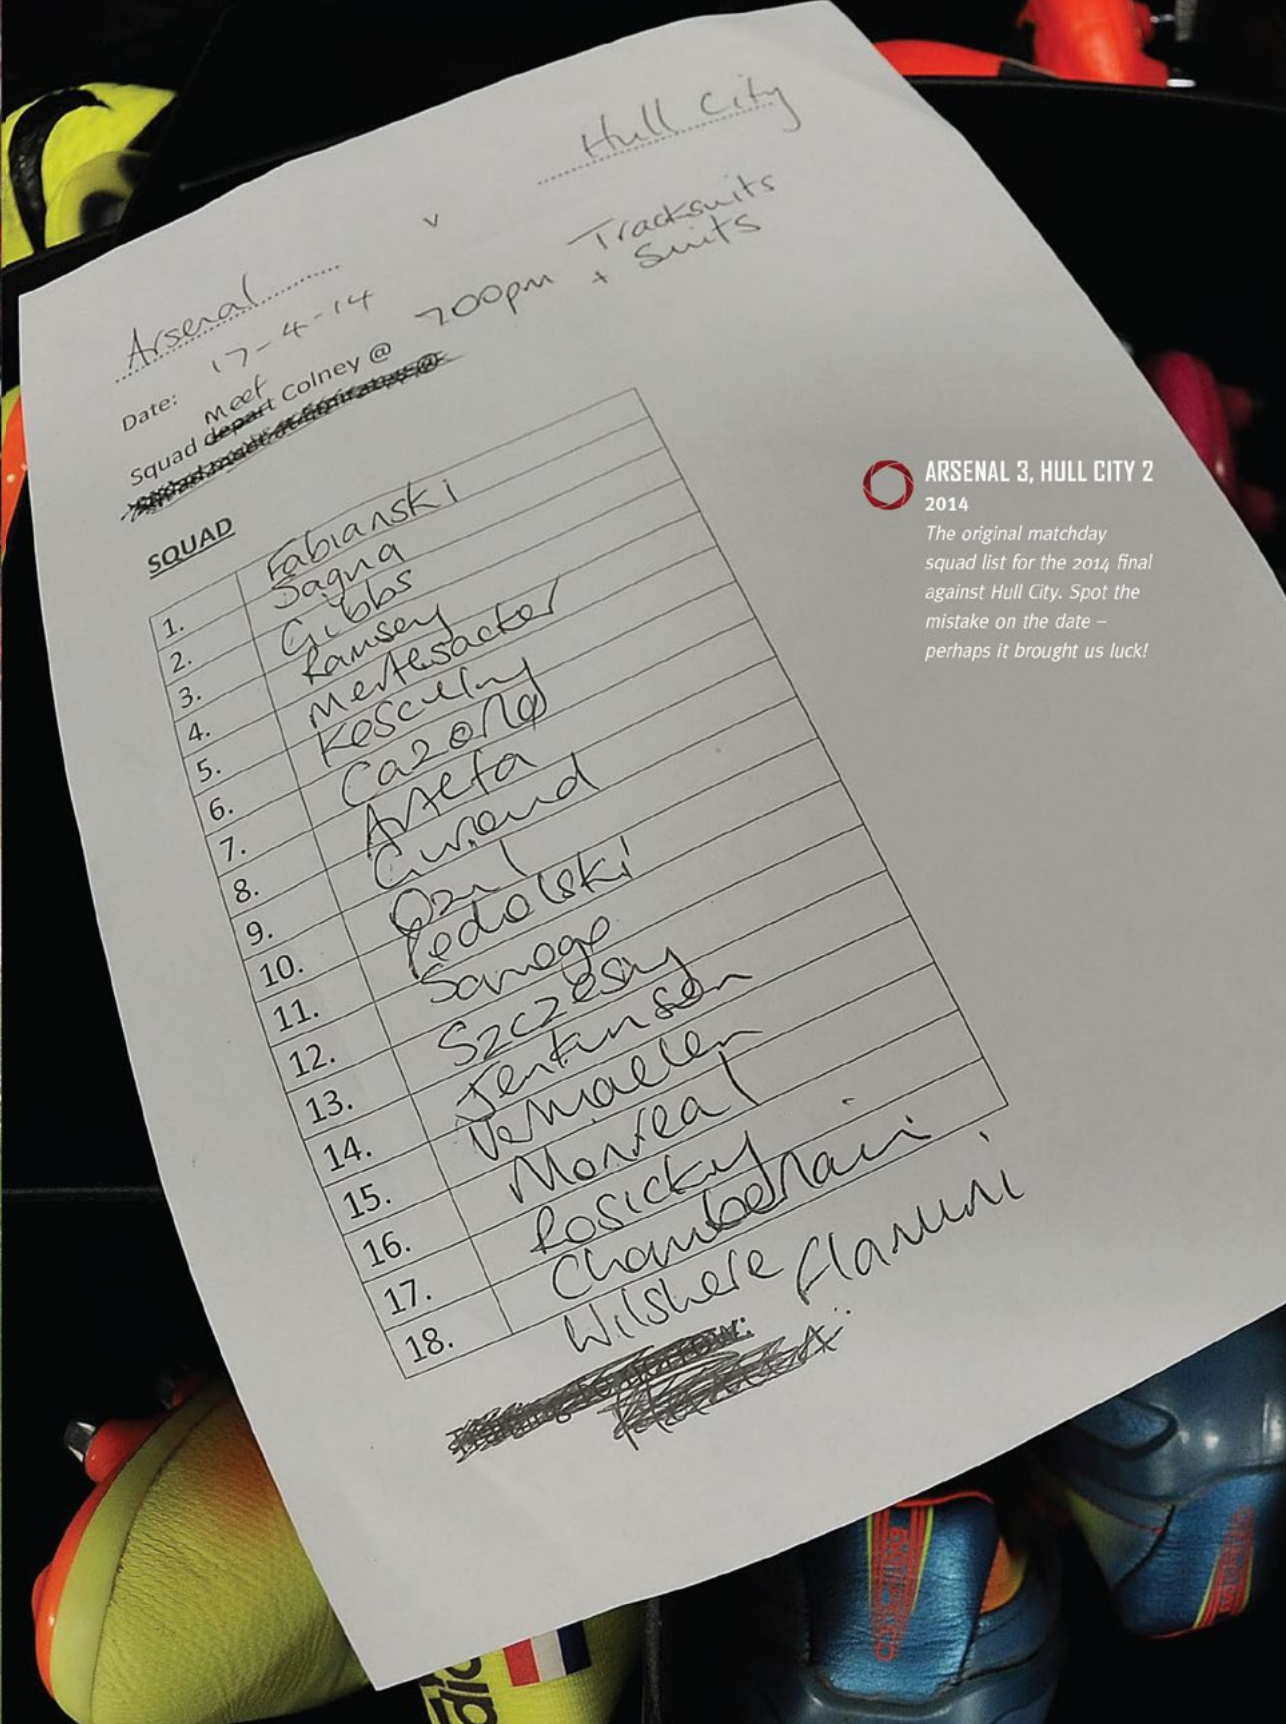 Hull City
v
Arsenal
Tracksuits
+ Suits
Date: 17-4-14 700pm
meet
Squad depart Colney @
SQUAD
1. Fabianski
2. Sagna
3. Gibbs
4. Ramsey
5. Mertesacker
6. Koscielny
7. Cazorla
8. Arteta
9. Giroud
10. Ozil
11. Podolski
12. Sanogo
13. Szczesny
14. Jenkinson
15. Vermaelen
16. Monreal
17. Rosicky
18. Chamberlain
Wilshere Flamini
ARSENAL 3, HULL CITY 2
2014
The original matchday
squad list for the 2014 final
against Hull City. Spot the
mistake on the date –
perhaps it brought us luck!